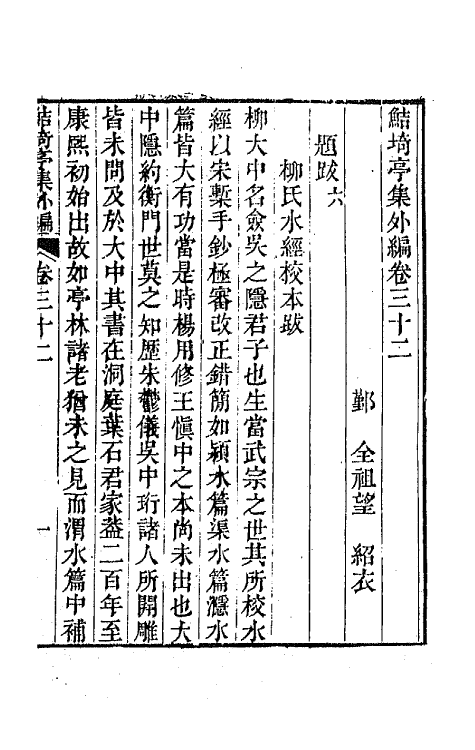 鮚埼亭集外編卷三十二
鄞 全祖望 紹衣
題跋六
柳氏水經校本跋
柳大中名僉吳之隱君子也生當武宗之世其所校水
經以宋槧手鈔極審改正錯簡如潁水篇渠水篇灅水
篇皆大有功當是時楊用修王愼中之本尚未出也大
中隱約衡門世莫之知歷朱鬱儀吳中珩諸人所開雕
皆未問及於大中其書在洞庭葉石君家葢二百年至
康熙初始出故如亭林諸老猶未之見而渭水篇中補
鮚埼亭集外編 卷三十二 一